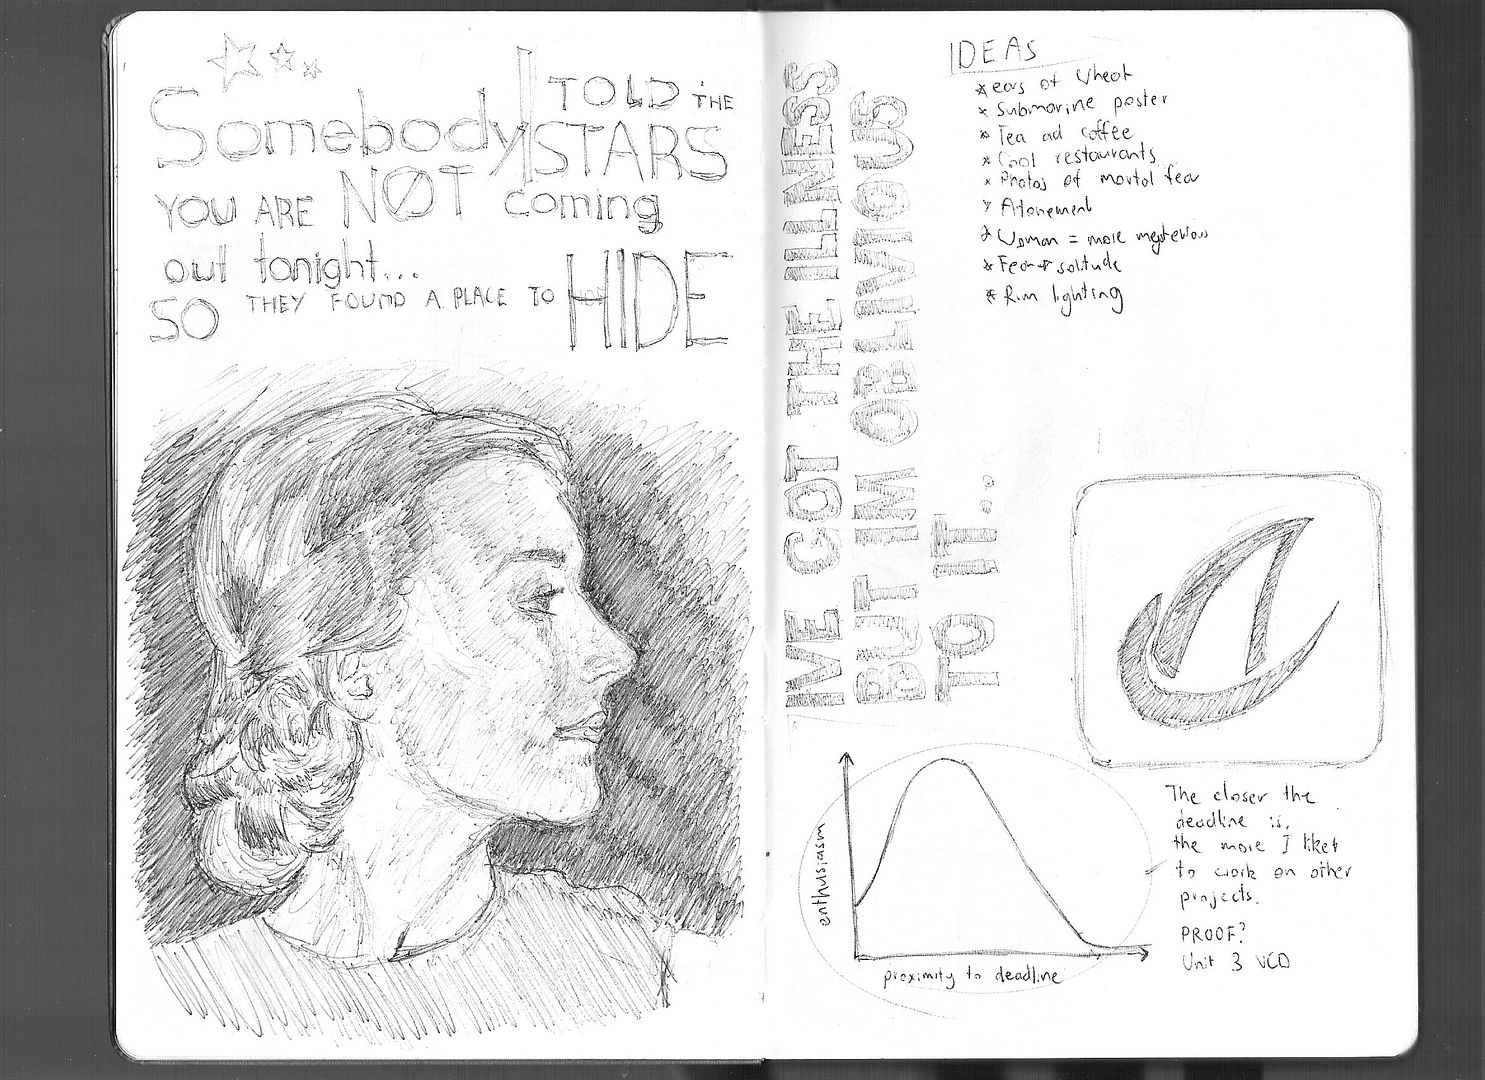 Somebody TOLD THE
STARS
YOU ARE NØT coming
out tonight...
SO THEY FOUND A PLACE TO HIDE
IVE GOT THE ILLNESS
BUT IM OBLIVIOUS
TO IT...
IDEAS
* ears of wheat
* Submarine poster
* Tea ad coffee
* Cool restaurants
* Photos of mortal fear
* Atonement
* Woman = more mysterious
* Fear + solitude
* Rim lighting
enthusiasm
proximity to deadline
The closer the
deadline is,
the more I like
to work on other
projects.
PROOF?
Unit 3 VCD